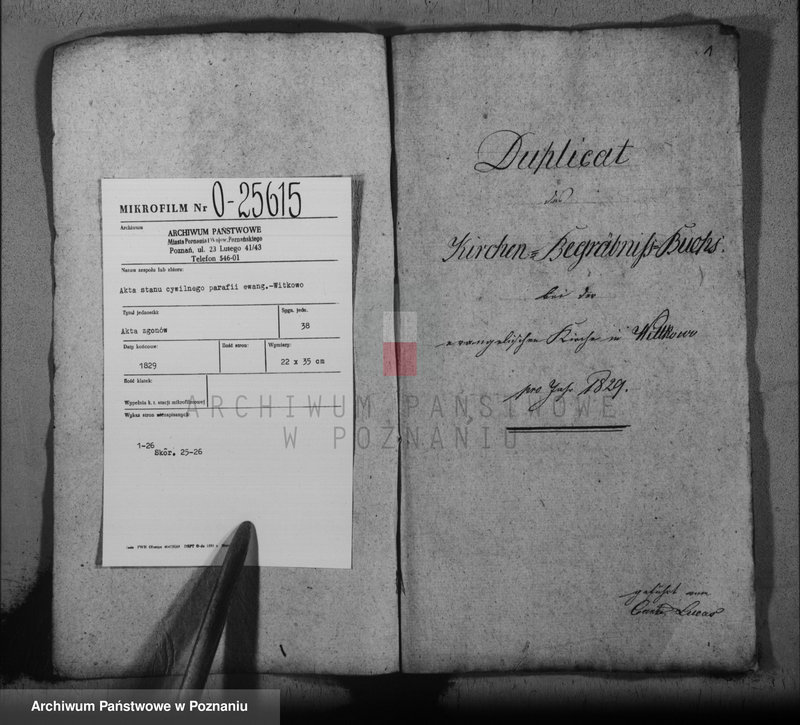 MIKROFILM Nr O-25615
Archiwum
ARCHIWUM PAŃSTWOWE
Miasta Poznania i Wojew. Poznańskiego
Poznań, ul. 23 Lutego 41/43
Telefon 546-01
Nazwa zespołu lub zbioru:
Akta stanu cywilnego parafii ewang.-Witkowo
Tytuł jednostki:
Sygn. jedn.
Akta zgonów
38
Daty końcowe:
Ilość stron:
Wymiary:
1829
22 x 35 cm
Ilość klatek:
Wypełnia k. t. stacji mikrofilmowej
Wykaz stron niezapisanych:
1-26
Skór. 25-26
1
Duplicat
des
Kirchen-Begräbniß-Buchs.
bei der
evangelischen Kirche in Wittkowo
pro Jahr 1829.
geführt vom
Lucas
ARCHIWUM PAŃSTWOWE
W POZNANIU
Archiwum Państwowe w Poznaniu